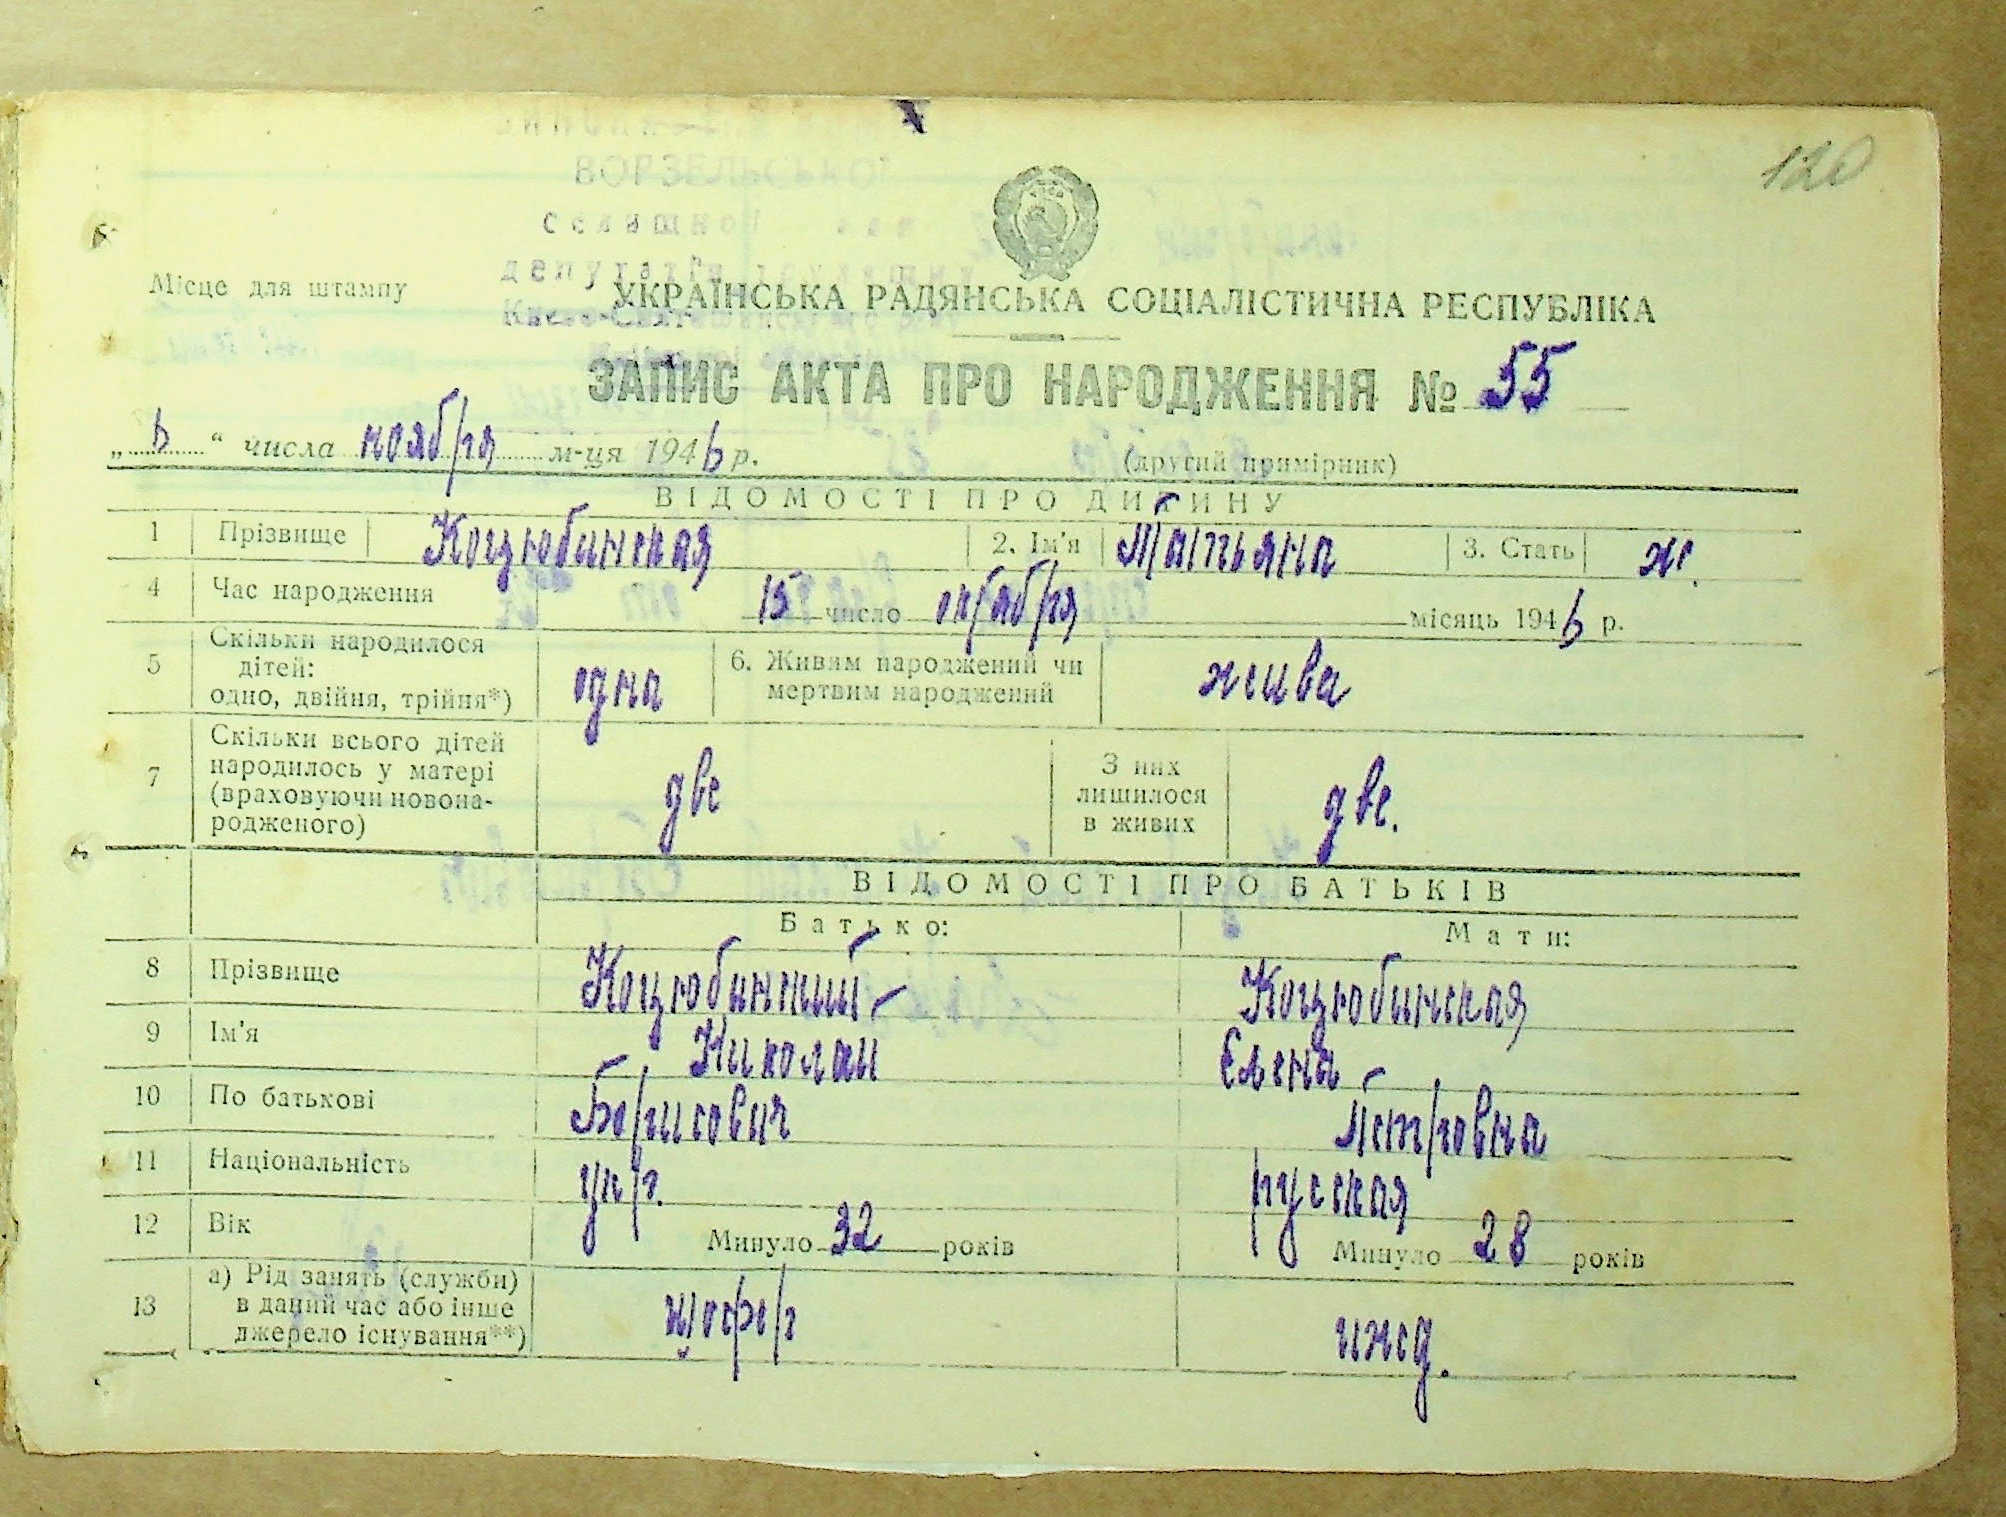 120
ВОРЗЕЛЬСЬКОЇ
депутатів трудящих
Місце для штампу
УКРАЇНСЬКА РАДЯНСЬКА СОЦІАЛІСТИЧНА РЕСПУБЛІКА
ЗАПИС АКТА ПРО НАРОДЖЕННЯ № 55
„ 6 “ числа ноября м-ця 1946 р. (другий примірник)
ВІДОМОСТІ ПРО ДИТИНУ
1 Прізвище Коцюбинская 2. Ім'я Татьяна 3. Стать ж.
4 Час народження 15 число октября місяць 1946 р.
5 Скільки народилося дітей: одно, двійня, трійня*) одна 6. Живим народжений чи мертвим народжений жива
7 Скільки всього дітей народилось у матері (враховуючи новонародженого) две З них лишилося в живих две.
ВІДОМОСТІ ПРО БАТЬКІВ
Батько: Мати:
8 Прізвище Коцюбинский Коцюбинская
9 Ім'я Николай Елена
10 По батькові Борисович Петровна
11 Національність укр. русская
12 Вік Минуло 32 років Минуло 28 років
13 а) Рід занять (служби) в даний час або інше джерело існування**) шофер ижд.